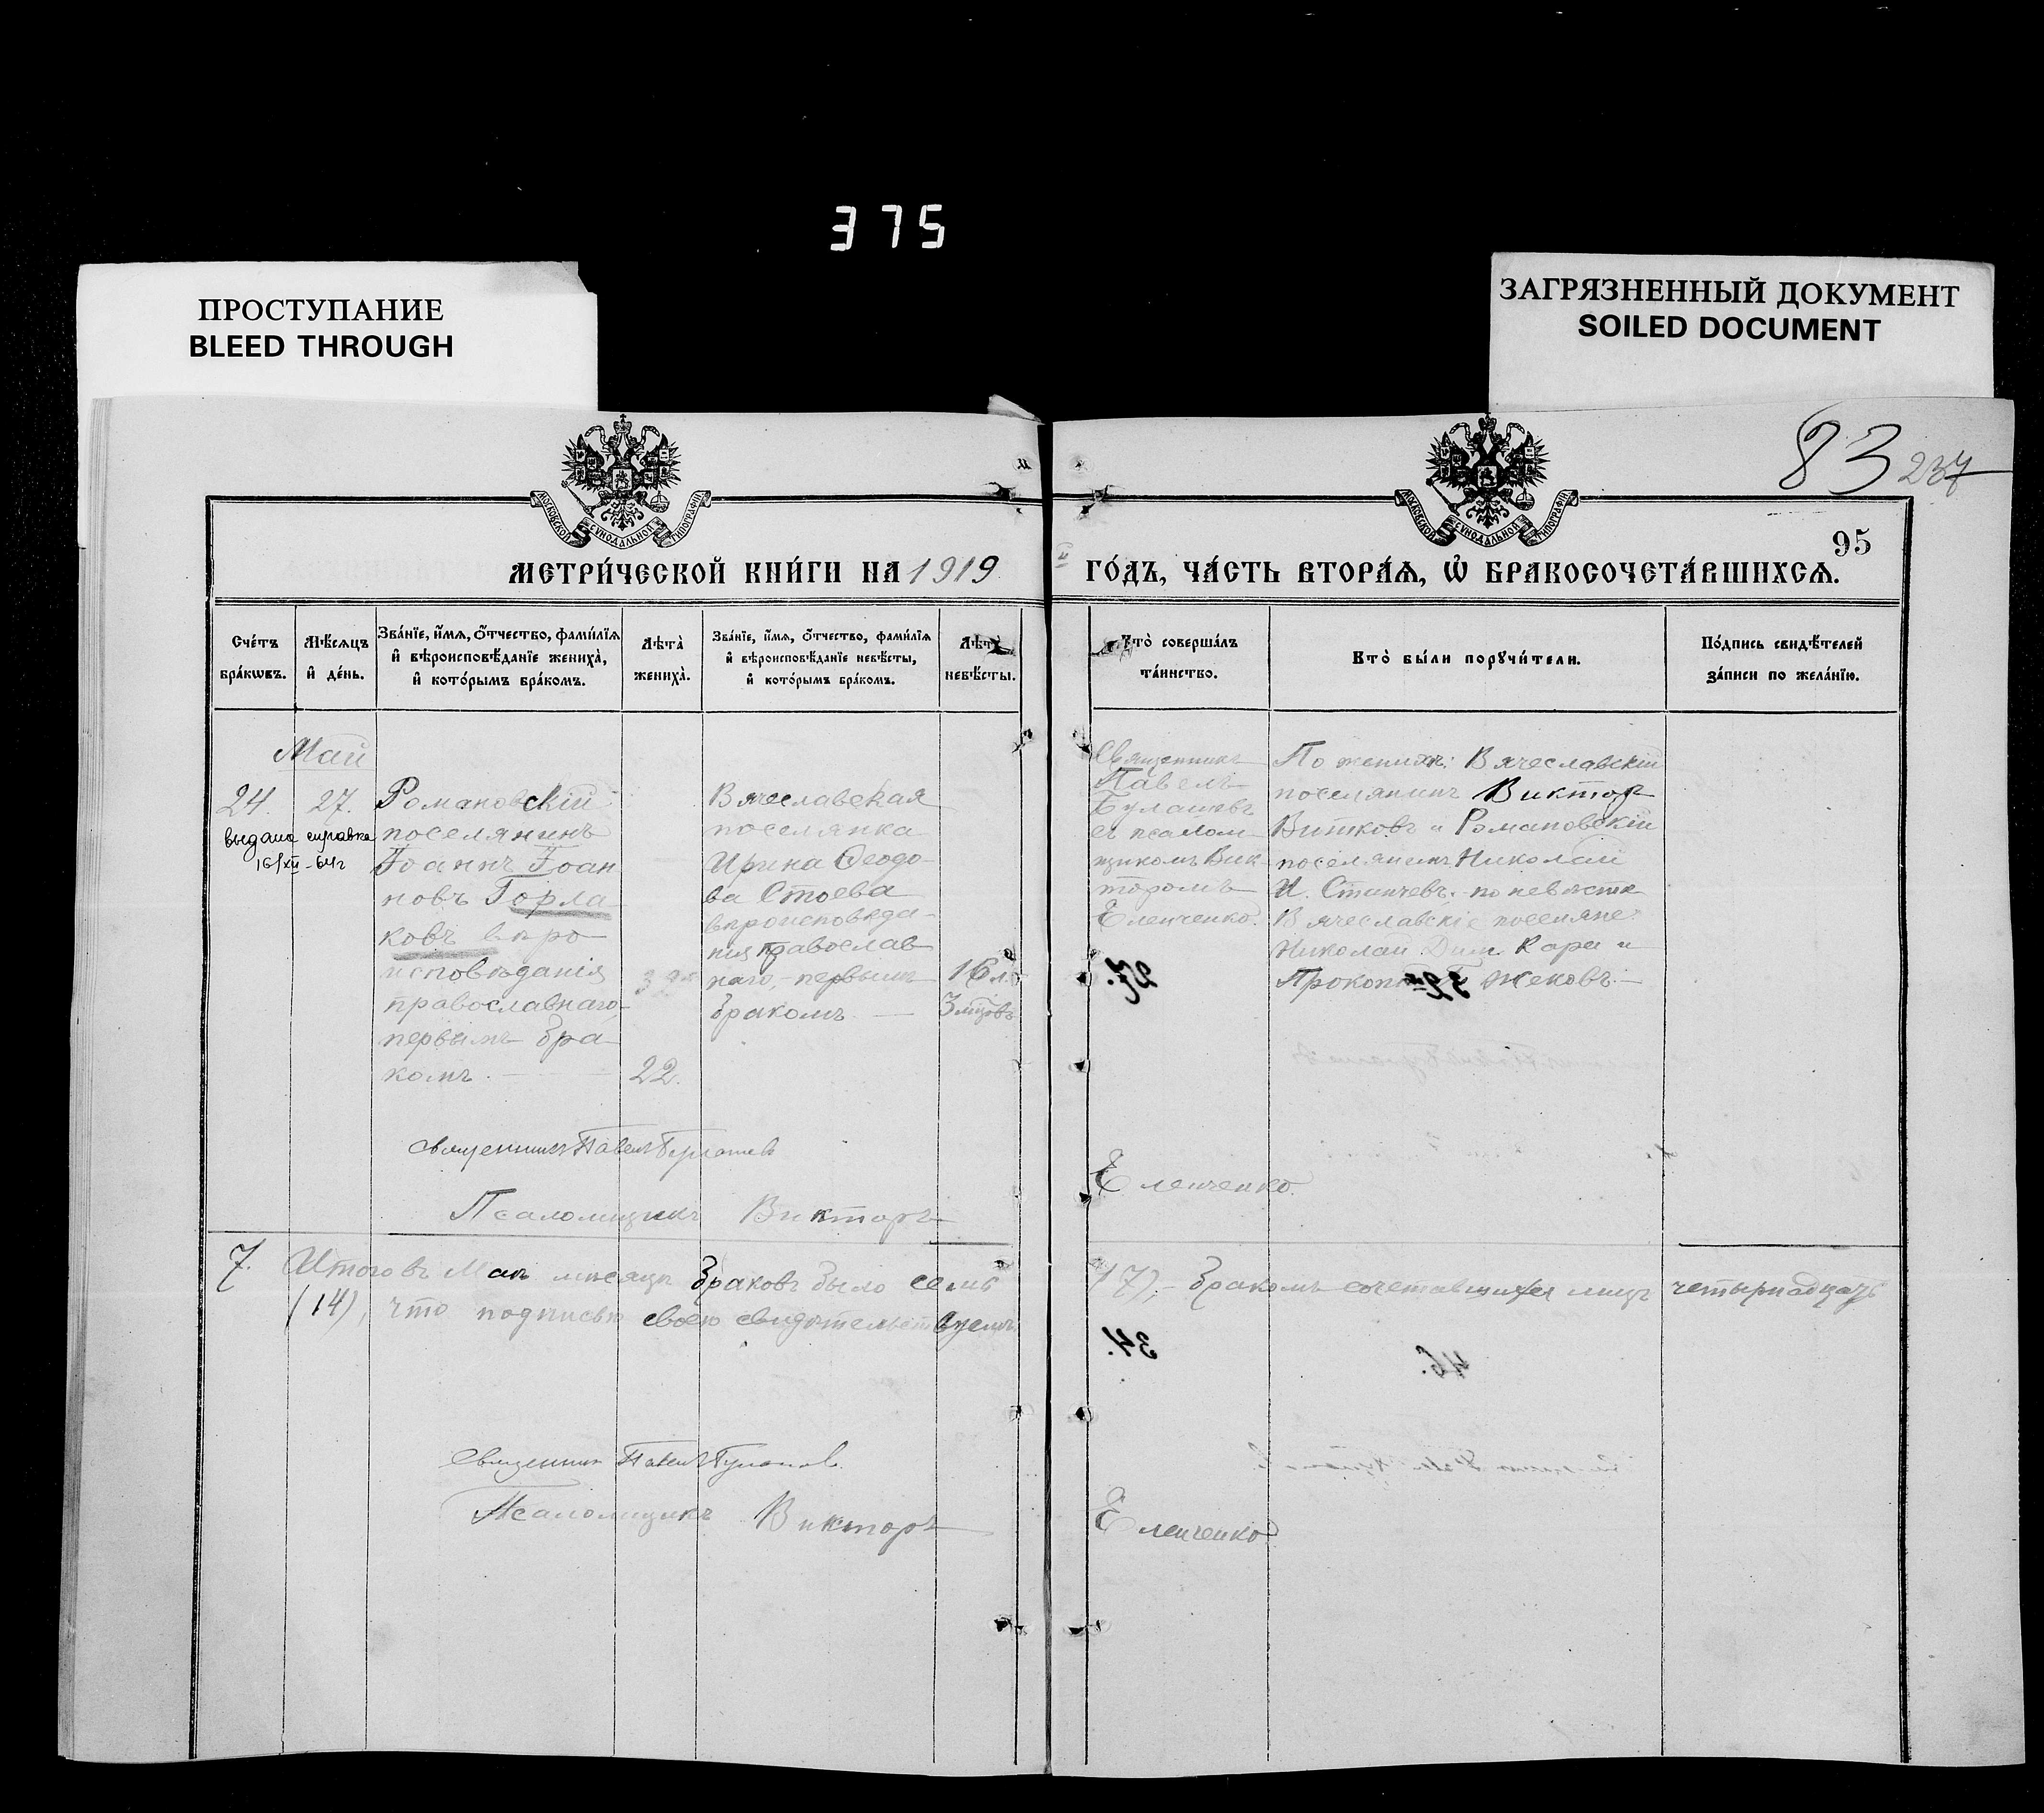 375
ПРОСТУПАНИЕ
BLEED THROUGH
ЗАГРЯЗНЕННЫЙ ДОКУМЕНТ
SOILED DOCUMENT
83 237
95
МОСКОВСКОЙ СѴНОДАЛЬНОЙ ТИПОГРАФІИ
МОСКОВСКОЙ СѴНОДАЛЬНОЙ ТИПОГРАФІИ
МЕТРИ́ЧЕСКОЙ КНИ́ГИ НА 1919
ГО́ДЪ, ЧА́СТЬ ВТОРА́Я, Ѽ БРАКОСОЧЕТА́ВШИХСЯ.
Сче́тъ
бра́кѡвъ.
Мѣ́сяцъ
и҆ де́нь.
Зва́нїе, и҆́мя, о҆́тчество, фами́лїя
и҆ вѣроисповѣ́данїе жениха̀,
и҆ кото́рымъ бра́комъ.
Лѣта̀
жениха̀.
Зва́нїе, и҆́мя, о҆́тчество, фами́лїя
и҆ вѣроисповѣ́данїе невѣ́сты,
и҆ кото́рымъ бра́комъ.
Лѣта̀
невѣ́сты.
Кто̀ соверша́лъ
та́инство.
Кто̀ бы́ли порꙋчи́тели.
По́дпись свидѣ́телей
за́писи по жела́нїю.
Май
24.
27.
выдана справка
16/XII-64г
Романовскій
поселянинъ
Іоаннъ Іоан
новъ Горла
ковъ вѣро
исповѣданія
православнаго,
первымъ бра
комъ.
22.
Вячеславская
поселянка
Ирина Ѳеодо-
ва Стоева
вѣроисповѣда-
нія православ
наго,- первымъ
бракомъ
16 л.
3 мѣсяц.
Священникъ
Павелъ
Булашевъ
съ псалом-
щикомъ Вик-
торомъ
Еленченко.
По женихѣ: Вячеславскій
поселянинъ Викторъ
Витковъ и Романовскій
поселянинъ Николай
И. Станчевъ. по невѣстѣ
Вячеславскіе поселяне:
Николай Дим. Кара и
Прокопій Жековъ.
27.
Священникъ Павелъ Булашевъ
Псаломщикъ Викторъ
Еленченко.
7. Итого въ Маѣ мѣсяцѣ браковъ было семь
(7),- бракомъ сочетавшихся лицъ четырнадцать
(14), что подписью своею свидѣтельствуемъ.
34.
46.
Священникъ Павелъ Булашевъ.
Псаломщикъ Викторъ
Еленченко